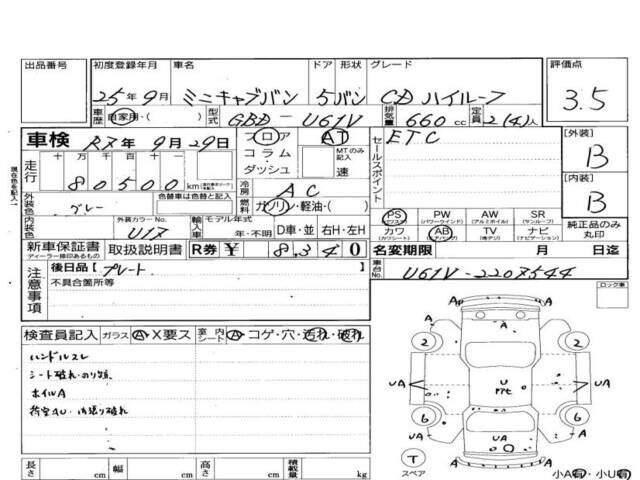 出品番号 初度登録年月 車名 ドア 形状 グレード 評価点
25年9月 ミニキャブバン 5 バン CD ハイルーフ 3.5
車歴 自家用・( ) 型式 GBD-U61V 排気量 660cc 定員 2(4)人
車検 R7年9月29日 フロア AT ETC
コラム MTのみ記入 セールスポイント
ダッシュ 速
走行 十万 万 千 百 十
80500km
冷房 AC
外装色 グレー 色替車は色替と記入 燃料 ガソリン・軽油・( )
内装色 外装カラーNo. U17 輸入車 モデル年式 年・不明 D車・並 右H・左H
[外装] B
[内装] B
PS PW AW SR
(パワーウインド) (アルミホイル) (サンルーフ)
カワ AB TV ナビ
(カワシート) (エアバッグ) (地デジ) (ナビゲーション)
純正品のみ丸印
新車保証書 ディーラー捺印あるもの 取扱説明書 R券 ¥ 8,340 名変期限 月 日迄
注意事項 後日品[プレート ] 車台No. U61V-2207544
不具合箇所等
ロック車
検査員記入 ガラス A・X要ス 室内シート A・コゲ・穴・汚れ・破れ
ハンドルスレ
シート破れ・のり跡
ホイルA
荷室AU・内張り破れ
A A
A A
2 2
UA U UA
6 6
A UA A
T スペア
A A
長さ cm 幅 cm 高さ cm 積載量 kg
小A有・小U有
現在色を記入